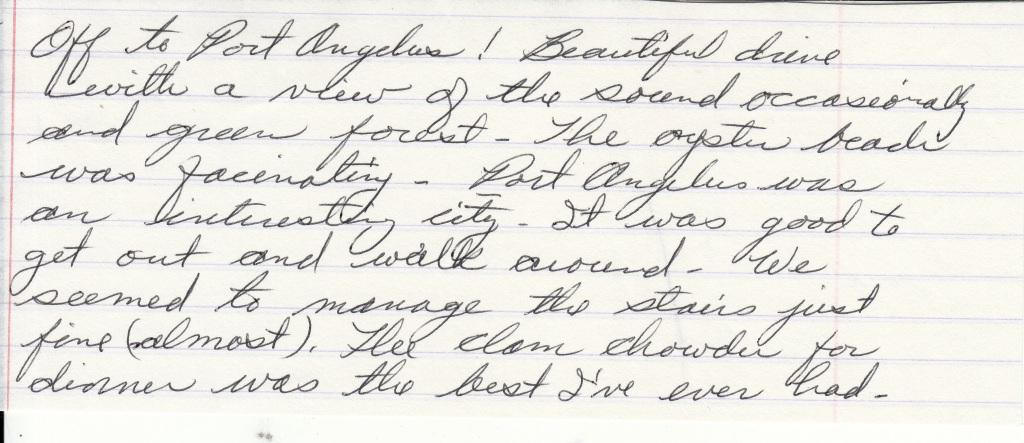 Off to Port Angelus! Beautiful drive
with a view of the sound occasionally
and green forest - The oyster beach
was facinating - Port Angelus was
an interesting city - It was good to
get out and walk around - We
seemed to manage the stairs just
fine (almost). The clam chowder for
dinner was the best I've ever had -